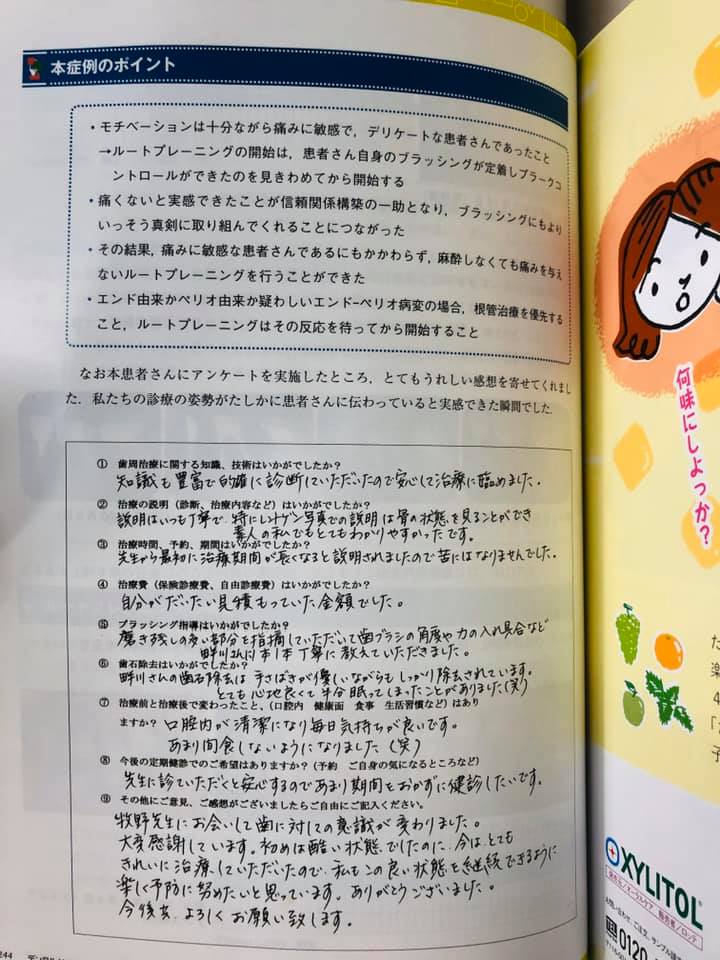 本症例のポイント
・モチベーションは十分ながら痛みに敏感で，デリケートな患者さんであったこと
→ルートプレーニングの開始は，患者さん自身のブラッシングが定着しプラークコ
ントロールができたのを見きわめてから開始する
・痛くないと実感できたことが信頼関係構築の一助となり，ブラッシングにもより
いっそう真剣に取り組んでくれることにつながった
・その結果，痛みに敏感な患者さんであるにもかかわらず，麻酔しなくても痛みを与え
ないルートプレーニングを行うことができた
・エンド由来かペリオ由来か疑わしいエンド-ペリオ病変の場合，根管治療を優先する
こと，ルートプレーニングはその反応を待ってから開始すること
なお本患者さんにアンケートを実施したところ，とてもうれしい感想を寄せてくれまし
た．私たちの診療の姿勢がたしかに患者さんに伝わっていると実感できた瞬間でした．
① 歯周治療に関する知識、技術はいかがでしたか？
知識も豊富で的確に診断していただいたので安心して治療に臨めました．
② 治療の説明（診断、治療内容など）はいかがでしたか？
説明はいつも丁寧で、特にレントゲン写真での説明は骨の状態を見ることができ
素人の私でもとてもわかりやすかったです。
③ 治療時間、予約、期間はいかがでしたか？
先生から最初に治療期間が長くなると説明されましたので苦にはなりませんでした。
④ 治療費（保険診療費、自由診療費）はいかがでしたか？
自分がだいたい見積もっていた金額でした。
⑤ ブラッシング指導はいかがでしたか？
磨き残しの多い部分を指摘していただいて歯ブラシの角度や力の入れ具合など
畔川さんに1本1本丁寧に教えていただきました。
⑥ 歯石除去はいかがでしたか？
畔川さんの歯石除去は手さばきが優しいながらもしっかり除去されています。
とても心地良くて半分眠ってしまったことがありました(笑)
⑦ 治療前と治療後で変わったこと、（口腔内　健康面　食事　生活習慣など）はあり
ますか？ 口腔内が清潔になり毎日気持ちが良いです。
あまり間食しないようになりました（笑）
⑧ 今後の定期健診でのご希望はありますか？（予約　ご自身の気になるところなど）
先生に診ていただくと安心するのであまり期間をおかずに健診したいです。
⑨ その他にご意見、ご感想がございましたらご自由にご記入ください。
牧野先生にお会いして歯に対しての意識が変わりました。
大変感謝しています。初めは酷い状態でしたのに、今はとても
きれいに治療していただいたので、私もこの良い状態を継続できるように
楽しく予防に努めたいと思っています。ありがとうございました。
今後共、よろしくお願い致します。
244
何味にしよっか？
XYLITOL
0120